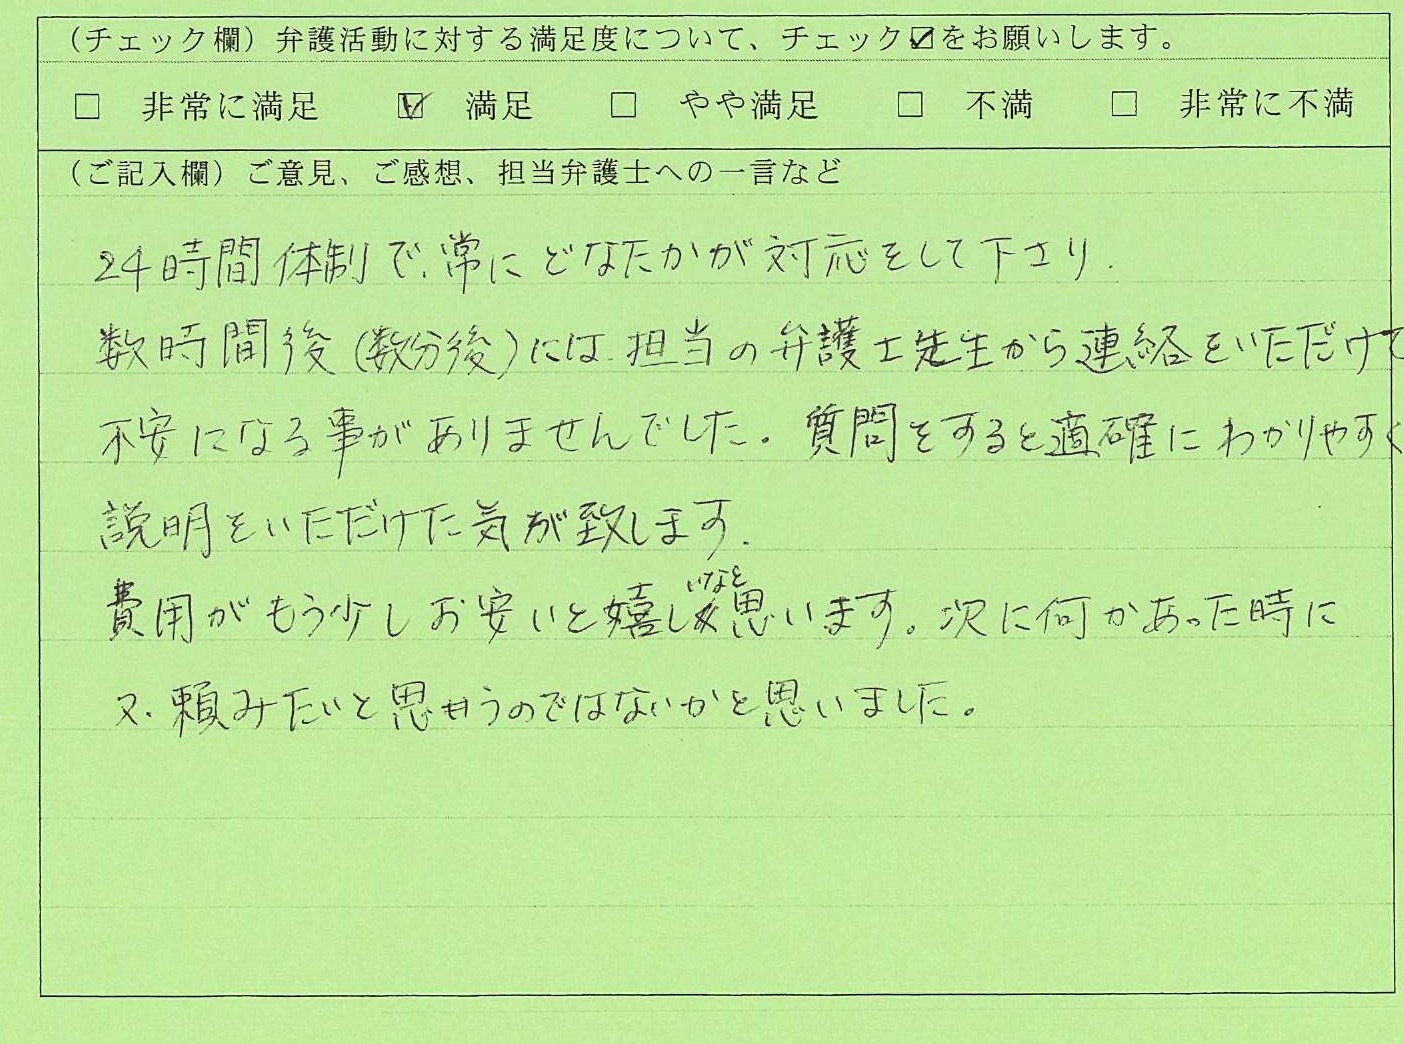 (チェック欄) 弁護活動に対する満足度について、チェック☑をお願いします。
□ 非常に満足 ☑ 満足 □ やや満足 □ 不満 □ 非常に不満
(ご記入欄) ご意見、ご感想、担当弁護士への一言など
24時間体制で、常にどなたかが対応をして下さり、
数時間後(数分後)には、担当の弁護士先生から連絡をいただけて
不安になる事がありませんでした。質問をすると適確にわかりやすく
説明をいただけた気が致します。
費用がもう少しお安いと嬉しいなと思います。次に何かあった時に
又、頼みたいと思うのではないかと思いました。